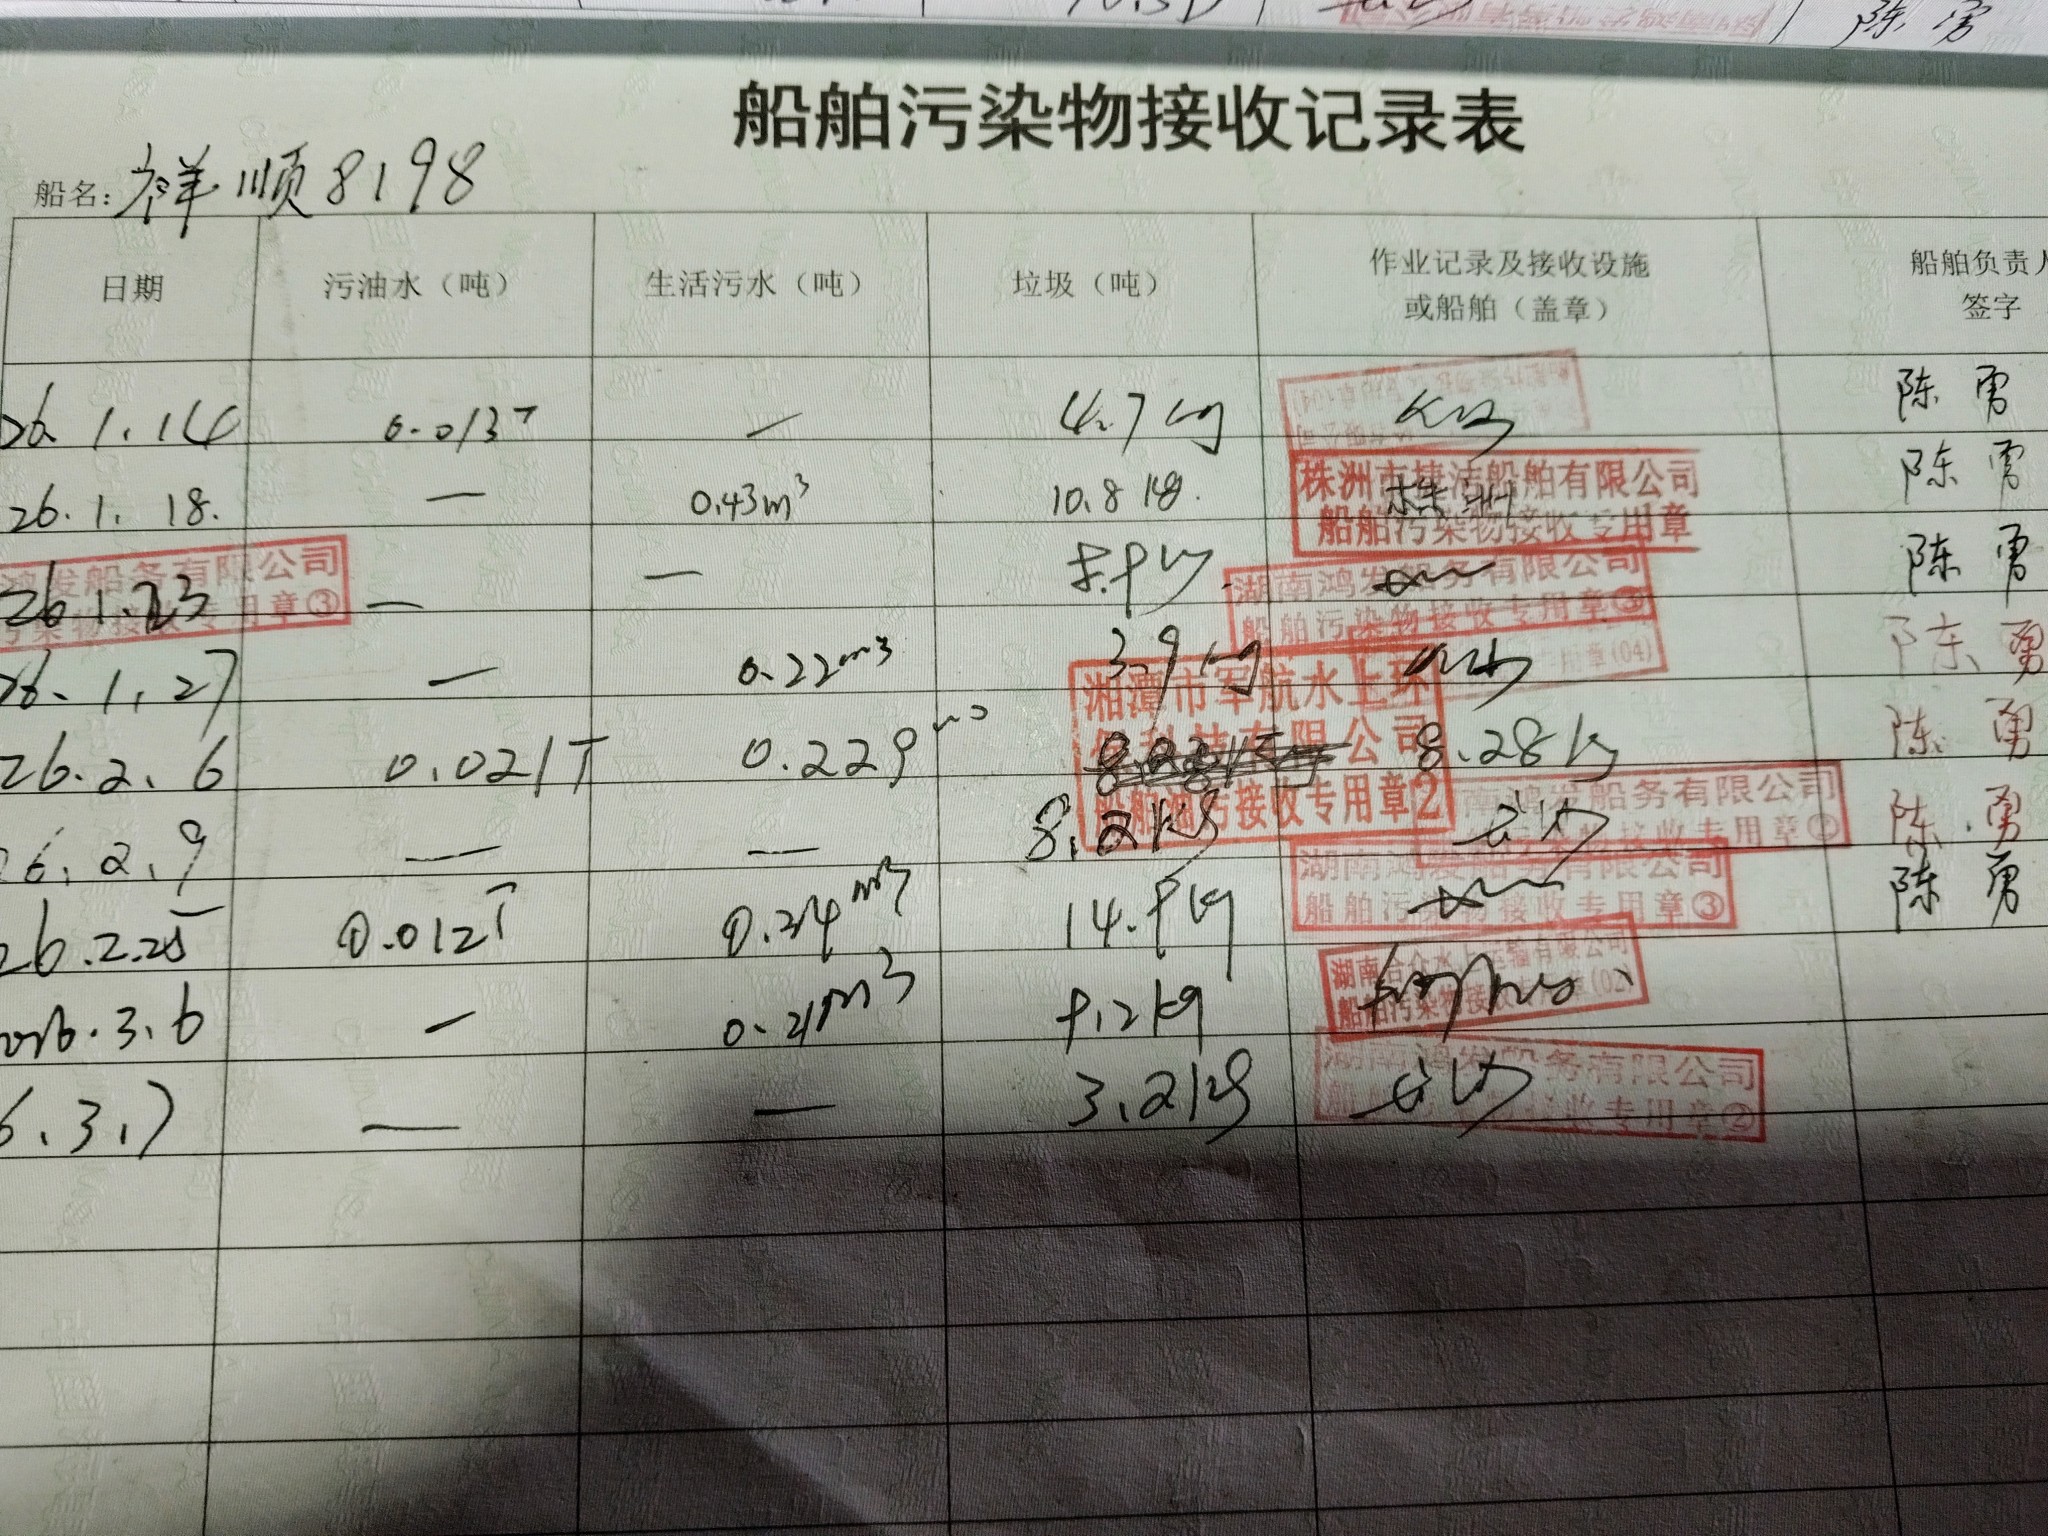 陈勇
船舶污染物接收记录表
船名: 祥顺8198
日期 污油水（吨） 生活污水（吨） 垃圾（吨） 作业记录及接收设施或船舶（盖章） 船舶负责人签字
26.1.14 0.013T — 4.7kg 陈勇
26.1.18. — 0.43m³ 10.8kg. 株洲 陈勇
株洲市捷洁船舶有限公司
船舶污染物接收专用章
26.1.23 — — 8.9kg 陈勇
鸿发船务有限公司
污染物接收专用章③
湖南鸿发船务有限公司
船舶污染物接收专用章③
26.1.27 — 0.22m³ 3.9kg 陈勇
专用章(04)
26.2.6 0.021T 0.229m³ 8.28kg 陈勇
湘潭市军航水上环
保科技有限公司
船舶油污接收专用章2
26.2.9 — — 8.2kg 陈勇
湖南鸿发船务有限公司
26.2.25 0.012T 0.34m³ 14.9kg 陈勇
湖南鸿发船务有限公司
船舶污染物接收专用章③
2026.3.6 — 0.21m³ 9.2kg
湖南合众水上运输有限公司
船舶污染物接收专用章(02)
6.3.7 — — 3.2kg
湖南鸿发船务有限公司
船舶污染物接收专用章②